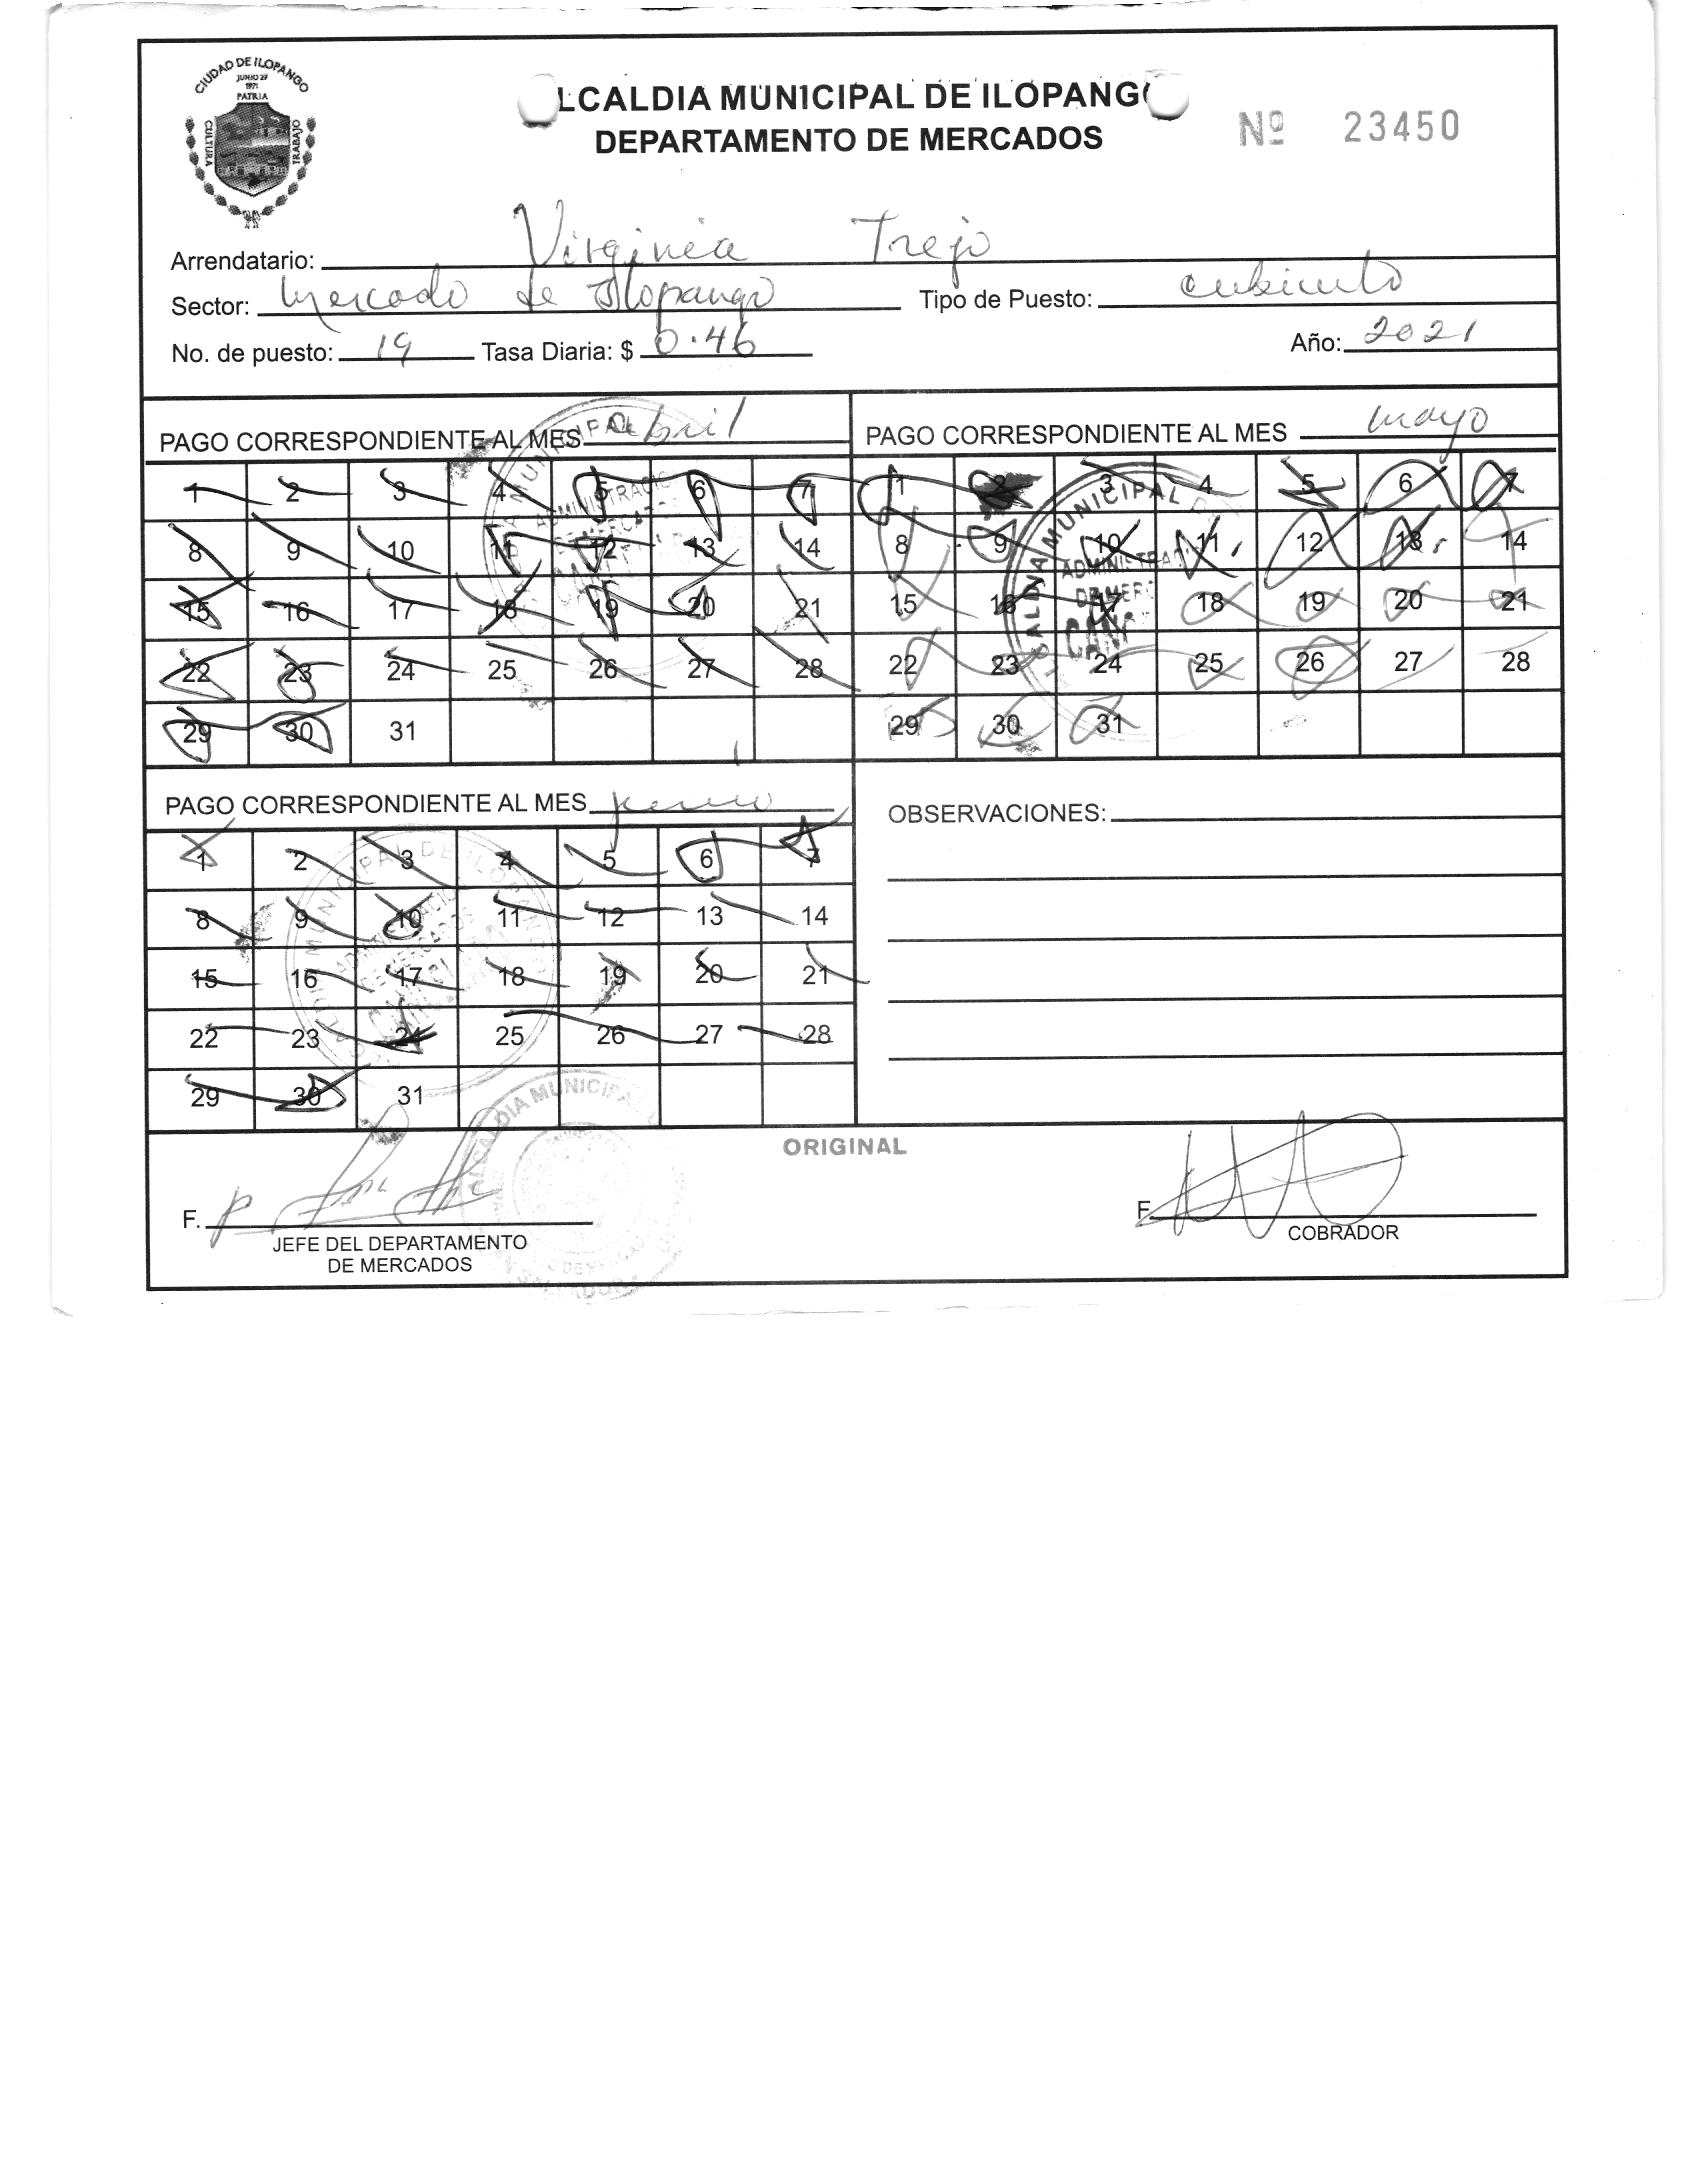 CIUDAD DE ILOPANGO
JUNIO 29
1971
PATRIA
CULTURA
TRABAJO
LCALDIA MUNICIPAL DE ILOPANG
DEPARTAMENTO DE MERCADOS
Nº 23450
Arrendatario: Virginia Trejo
Sector: Mercado de Ilopango Tipo de Puesto: cubiculo
No. de puesto: 19 Tasa Diaria: $ 0.46 Año: 2021
PAGO CORRESPONDIENTE AL MES abril
1 2 3 4 5 6 7
8 9 10 11 12 13 14
15 16 17 18 19 20 21
22 23 24 25 26 27 28
29 30 31
PAGO CORRESPONDIENTE AL MES mayo
1 2 3 4 5 6 7
8 9 10 11 12 13 14
15 16 17 18 19 20 21
22 23 24 25 26 27 28
29 30 31
PAGO CORRESPONDIENTE AL MES junio
1 2 3 4 5 6 7
8 9 10 11 12 13 14
15 16 17 18 19 20 21
22 23 24 25 26 27 28
29 30 31
OBSERVACIONES:
ORIGINAL
F.
JEFE DEL DEPARTAMENTO
DE MERCADOS
F.
COBRADOR